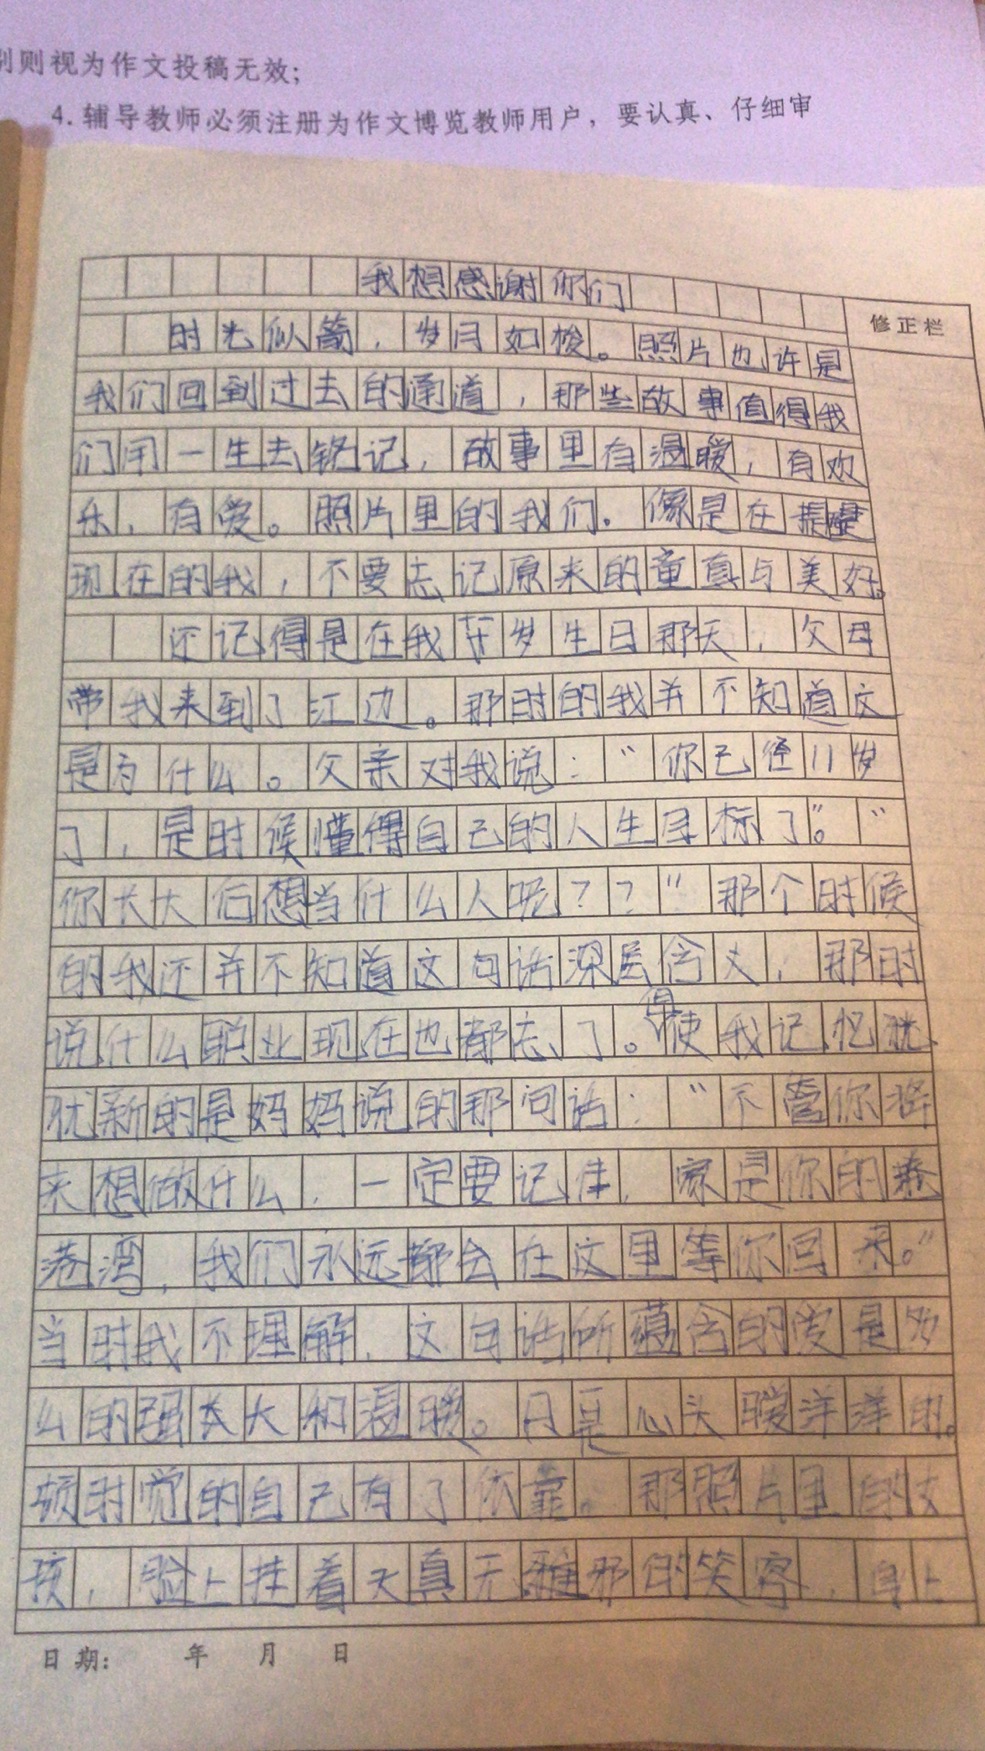 别则视为作文投稿无效;
4. 辅导教师必须注册为作文博览教师用户，要认真、仔细审
我想感谢你们
修正栏
时光似箭，岁月如梭。照片也许是
我们回到过去的通道，那些故事值得我
们用一生去铭记，故事里有温暖，有欢
乐，有爱。照片里的我们。像是在提醒
现在的我，不要忘记原来的童真与美好。
还记得是在我 岁生日那天，父母
带我来到了江边。那时的我并不知道这
是为什么。父亲对我说：“你已经11岁
了，是时候懂得自己的人生目标了”。“
你长大后想当什么人呢？？”那个时候
的我还并不知道这句话深层含义，那时
说什么职业现在也都忘了。得使我记忆犹
犹新的是妈妈说的那句话：“不管你将
来想做什么，一定要记住，家是你的港
港湾，我们永远都会在这里等你回来。”
当时我不理解，这句话所蕴含的爱是多
么的强长大和温暖。只是心头暖洋洋的。
顿时觉的自己有了依靠。那照片里的女
孩，脸上挂着天真无雅邪的笑容，身上
日期: 年 月 日